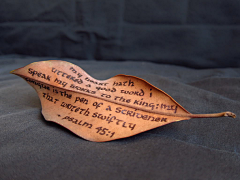 my heart hath
uttered a good word i
speak my works to the king: my
tongue is the pen of a scrivener
that writeth swiftly
- psalm 45:1